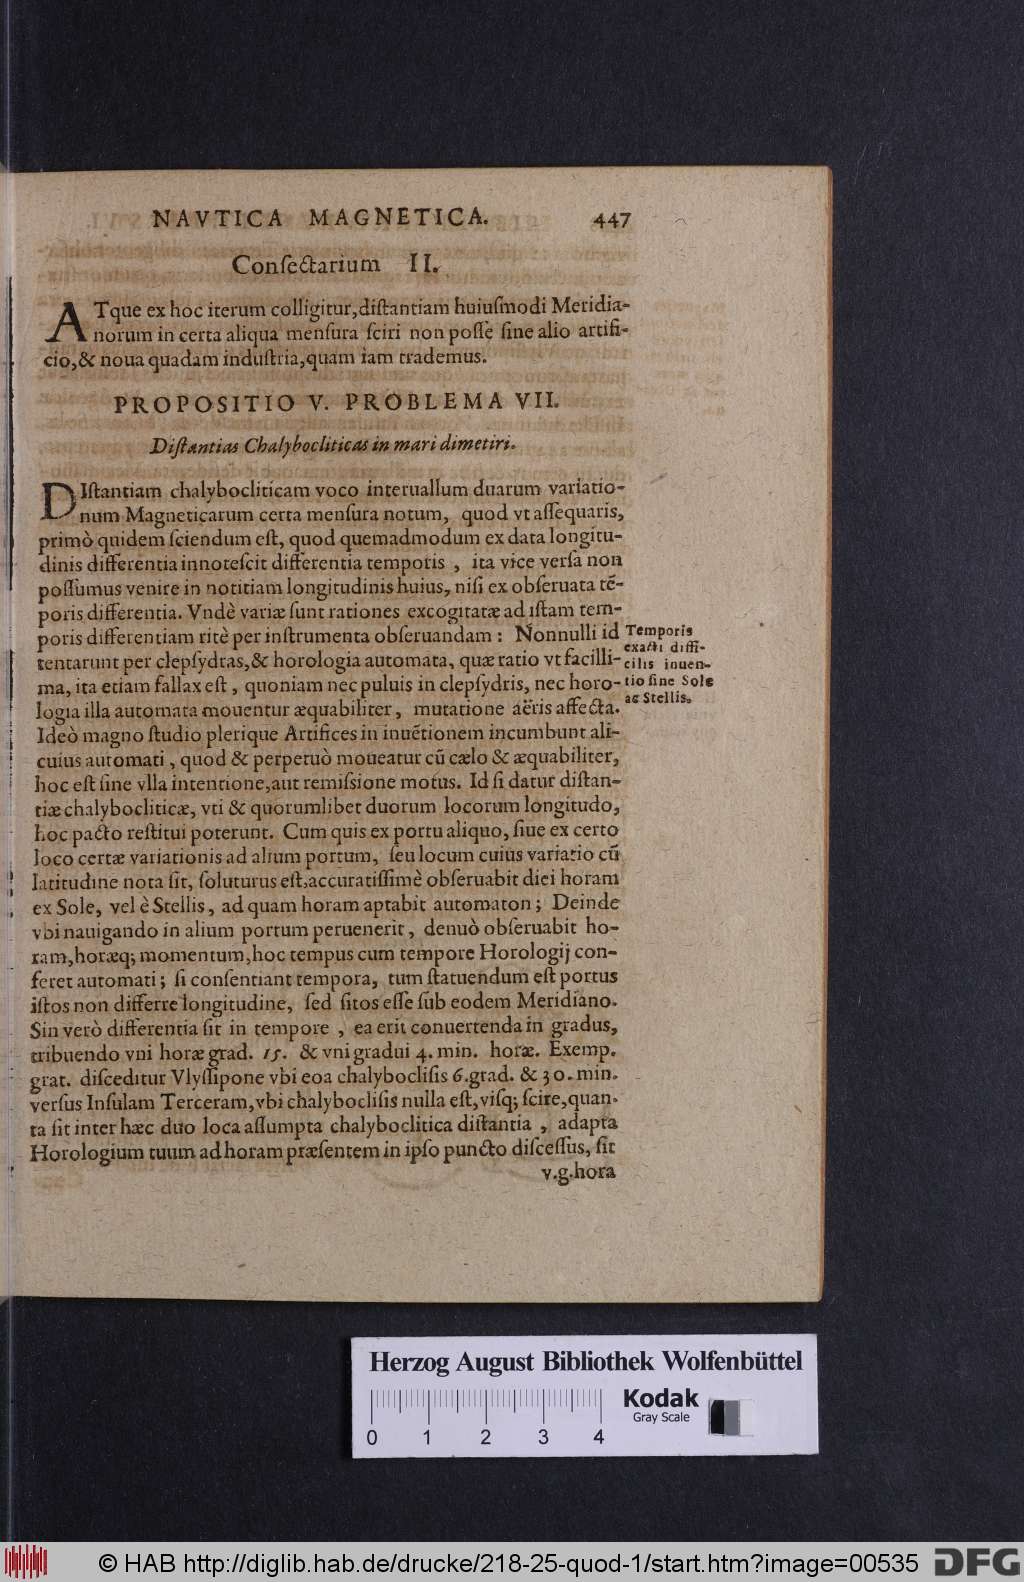 NAVTICA MAGNETICA. 447
Conſectarium II.
ATque ex hoc iterum colligitur,diſtantiam huiuſmodi Meridia-
norum in certa aliqua menſura ſciri non poſſe ſine alio artifi-
cio,& noua quadam induſtria,quam iam trademus.
PROPOSITIO V. PROBLEMA VII.
Diſtantias Chalybocliticas in mari dimetiri.
DIſtantiam chalybocliticam voco interuallum duarum variatio-
num Magneticarum certa menſura notum, quod vt aſſequaris,
primò quidem ſciendum eſt, quod quemadmodum ex data longitu-
dinis differentia innoteſcit differentia temporis , ita vice verſa non
poſſumus venire in notitiam longitudinis huius, niſi ex obſeruata tē-
poris differentia. Vndè variæ ſunt rationes excogitatæ ad iſtam tem-
poris differentiam ritè per inſtrumenta obſeruandam : Nonnulli id
tentarunt per clepſydras,& horologia automata, quæ ratio vt facilli-
ma, ita etiam fallax eſt , quoniam nec puluis in clepſydris, nec horo-
logia illa automata mouentur æquabiliter , mutatione aëris affecta.
Temporis
exacti diffi-
cilis inuen-
tio ſine Sole
ac Stellis.
Ideò magno ſtudio plerique Artifices in inuētionem incumbunt ali-
cuius automati , quod & perpetuò moueatur cū cælo & æquabiliter,
hoc eſt ſine vlla intentione,aut remiſsione motus. Id ſi datur diſtan-
tiæ chalybocliticæ, vti & quorumlibet duorum locorum longitudo,
hoc pacto reſtitui poterunt. Cum quis ex portu aliquo, ſiue ex certo
loco certæ variationis ad alium portum, ſeu locum cuius variatio cū
latitudine nota ſit, ſoluturus eſt,accuratiſſimè obſeruabit diei horam
ex Sole, vel è Stellis, ad quam horam aptabit automaton ; Deinde
vbi nauigando in alium portum peruenerit , denuò obſeruabit ho-
ram,horæq; momentum,hoc tempus cum tempore Horologij con-
feret automati ; ſi conſentiant tempora, tum ſtatuendum eſt portus
iſtos non differre longitudine, ſed ſitos eſſe ſub eodem Meridiano.
Sin verò differentia ſit in tempore , ea erit conuertenda in gradus,
tribuendo vni horæ grad. 15. & vni gradui 4. min. horæ. Exemp.
grat. diſceditur Vlyſſipone vbi eoa chalybocliſis 6.grad. & 30. min.
verſus Inſulam Terceram,vbi chalybocliſis nulla eſt,viſq; ſcire,quan-
ta ſit inter hæc duo loca aſſumpta chalyboclitica diſtantia , adapta
Horologium tuum ad horam præſentem in ipſo puncto diſceſſus, ſit
v.g.hora
Herzog August Bibliothek Wolfenbüttel
Kodak
Gray Scale
0 1 2 3 4
© HAB http://diglib.hab.de/drucke/218-25-quod-1/start.htm?image=00535
DFG